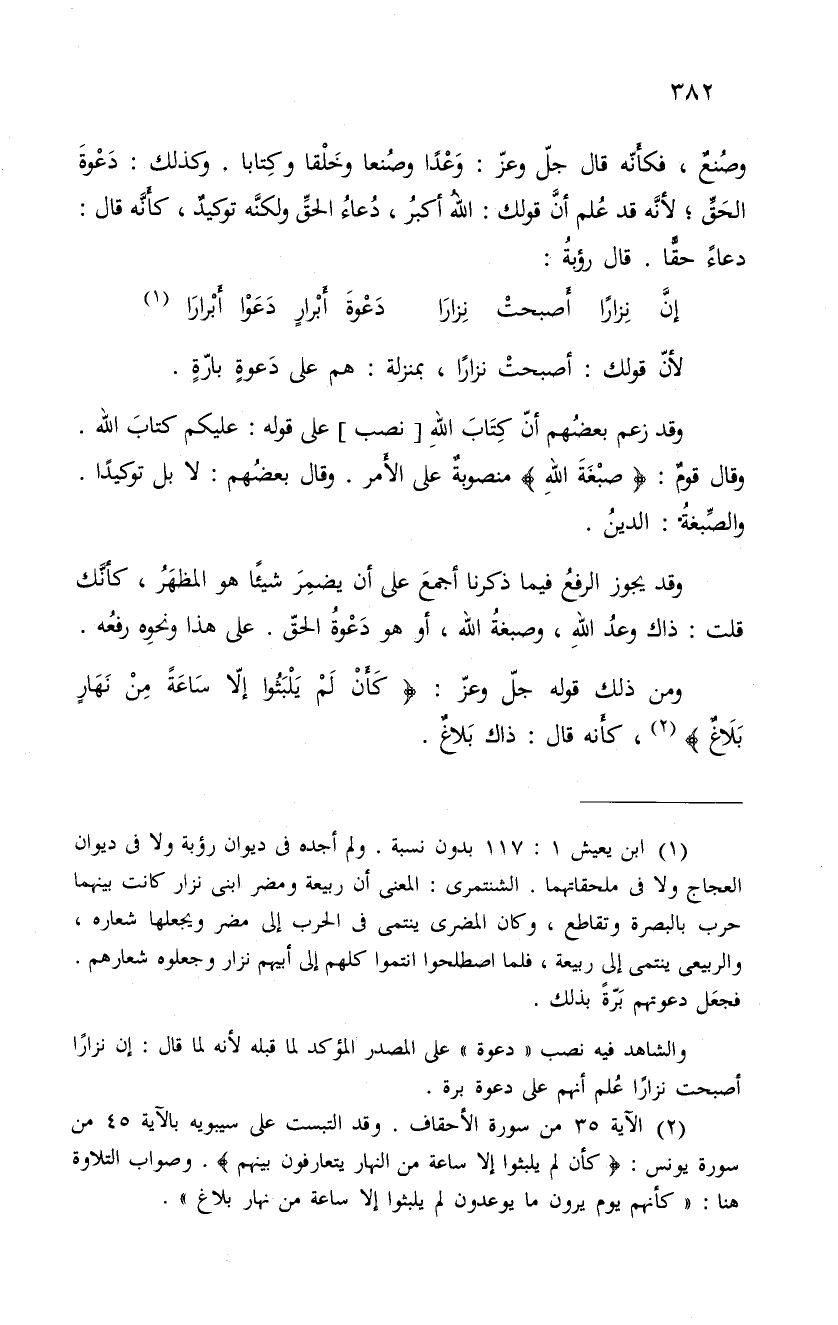 ٣٨٢
وصُنعٌ ، فكأَنّه قال جلّ وعزّ : وَعْدًا وصُنعا وخَلْقا وكِتابا . وكذلك : دَعْوةَ
الحَقِّ ؛ لأنَّه قد عُلم أنَّ قولك : اللهُ أكبرُ ، دُعاءُ الحقِّ ولكنَّه توكيدٌ ، كأَنَّه قال :
دعاءً حقًّا . قال رؤبةُ :
إنَّ نِزارًا أَصبحتْ نِزارَا دَعْوةَ أَبْرارٍ دَعَوْا أَبْرارَا (١)
لأنّ قولك : أصبحتْ نزارًا ، بمنزلة : هم على دَعوةٍ بارّةٍ .
وقد زعم بعضُهم أنّ كِتَابَ اللهِ [ نصب ] على قوله : عليكم كتابَ الله .
وقال قومٌ : ﴿ صبْغَةَ اللهِ ﴾ منصوبةٌ على الأَمر . وقال بعضُهم : لا بل توكيدًا .
والصِّبغةُ : الدينُ .
وقد يجوز الرفعُ فيما ذكرنا أجمعَ على أن يضمِرَ شيئًا هو المظهَرُ ، كأنَّك
قلت : ذاك وعدُ اللهِ ، وصبغةُ الله ، أو هو دَعْوةُ الحقّ . على هذا ونحوِه رفعُه .
ومن ذلك قوله جلّ وعزّ : ﴿ كَأَنْ لَمْ يَلْبَثُوا إلّا سَاعَةً مِنْ نَهَارٍ
بَلَاغٌ ﴾ (٢) ، كأَنه قال : ذاك بَلاغٌ .
(١) ابن يعيش ١ : ١١٧ بدون نسبة . ولم أجده فى ديوان رؤبة ولا فى ديوان
العجاج ولا فى ملحقاتهما . الشنتمرى : المعنى أن ربيعة ومضر ابنى نزار كانت بينهما
حرب بالبصرة وتقاطع ، وكان المضرى ينتمى فى الحرب إلى مضر ويجعلها شعاره ،
والربيعى ينتمى إلى ربيعة ، فلما اصطلحوا انتموا كلهم إلى أبيهم نزار وجعلوه شعارهم .
فجعَل دعوتهم بَرّةً بذلك .
والشاهد فيه نصب « دعوة » على المصدر المؤكد لما قبله لأنه لما قال : إن نزارًا
أصبحت نزارًا عُلم أنهم على دعوة برة .
(٢) الآية ٣٥ من سورة الأحقاف . وقد التبست على سيبويه بالآية ٤٥ من
سورة يونس : ﴿ كأن لم يلبثوا إلا ساعة من النهار يتعارفون بينهم ﴾ . وصواب التلاوة
هنا : « كأنهم يوم يرون ما يوعدون لم يلبثوا إلا ساعة من نهار بلاغ » .